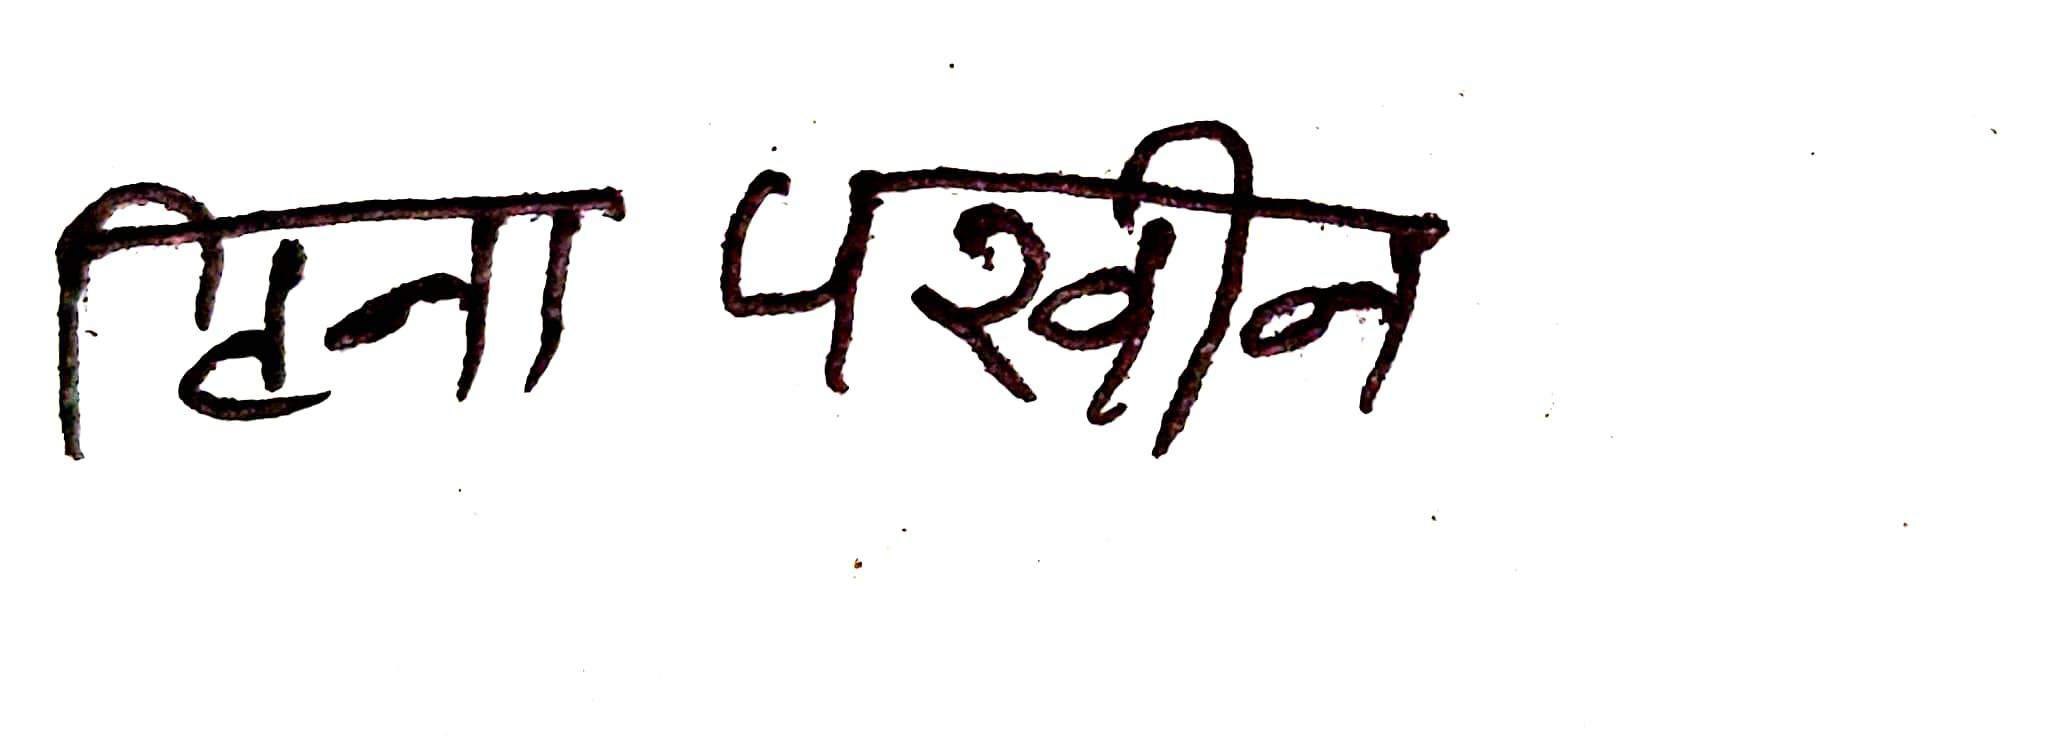 हिना परवीन